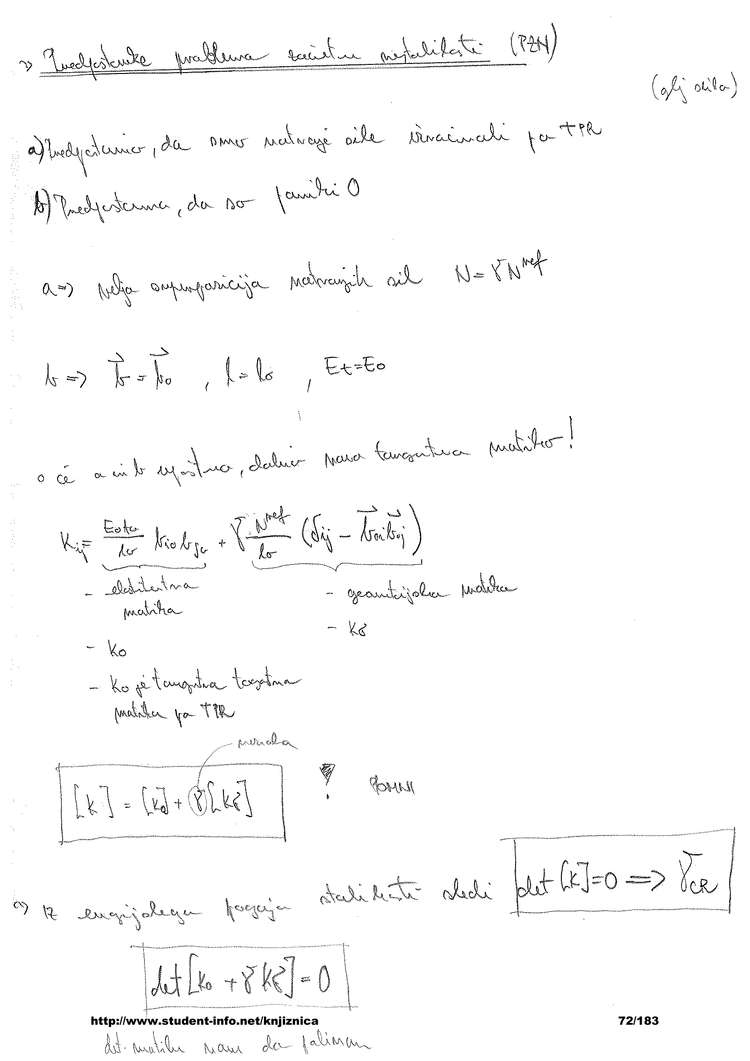 Predpostavke problema začetne nestabilnosti (PZN)
(glj skila)
a) Predpostavimo, da smo notranje sile izračunali po TPR
b) Predpostavimo, da so pomiki 0
a => velja superpozicija notranjih sil N = γ N^ref
b => b⃗ = b⃗o , l = lo , Et = Eo
o če a in b upoštevamo, dobimo novo tangentno matriko!
Kij = EoAo/lo bio bjo + γ N^ref/lo (δij - b⃗oi b⃗oj)
- elastična matrika
- geometrijska matrika
- Ko
- Kγ
- Ko je tangentna matrika po TPR
neznanka
[K] = [Ko] + γ [Kγ] ! POMNI
Iz energijskega pogoja stabilnosti sledi det [K] = 0 => γCR
det [Ko + γ Kγ] = 0
http://www.student-info.net/knjiznica 72/183
det. matrike nam da polinom